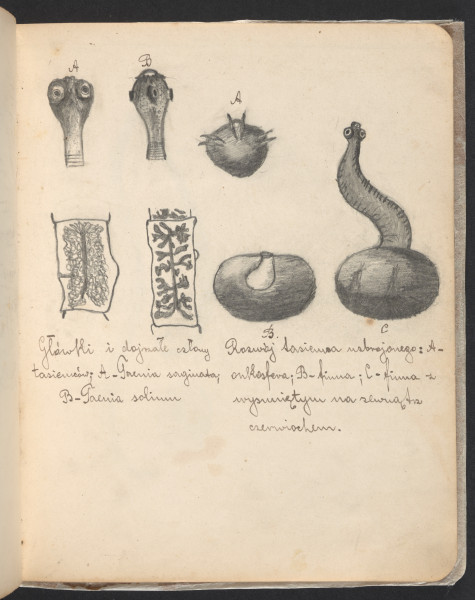 A
B
A
B.
C
Główki i dojrzałe człony
tasiemców; A-Taenia saginata,
B-Taenia solium
Rozwój tasiemca uzbrojonego: A-
onkosfera; B-finna; C-finna z
wysuniętym na zewnątrz
czerwiochem.